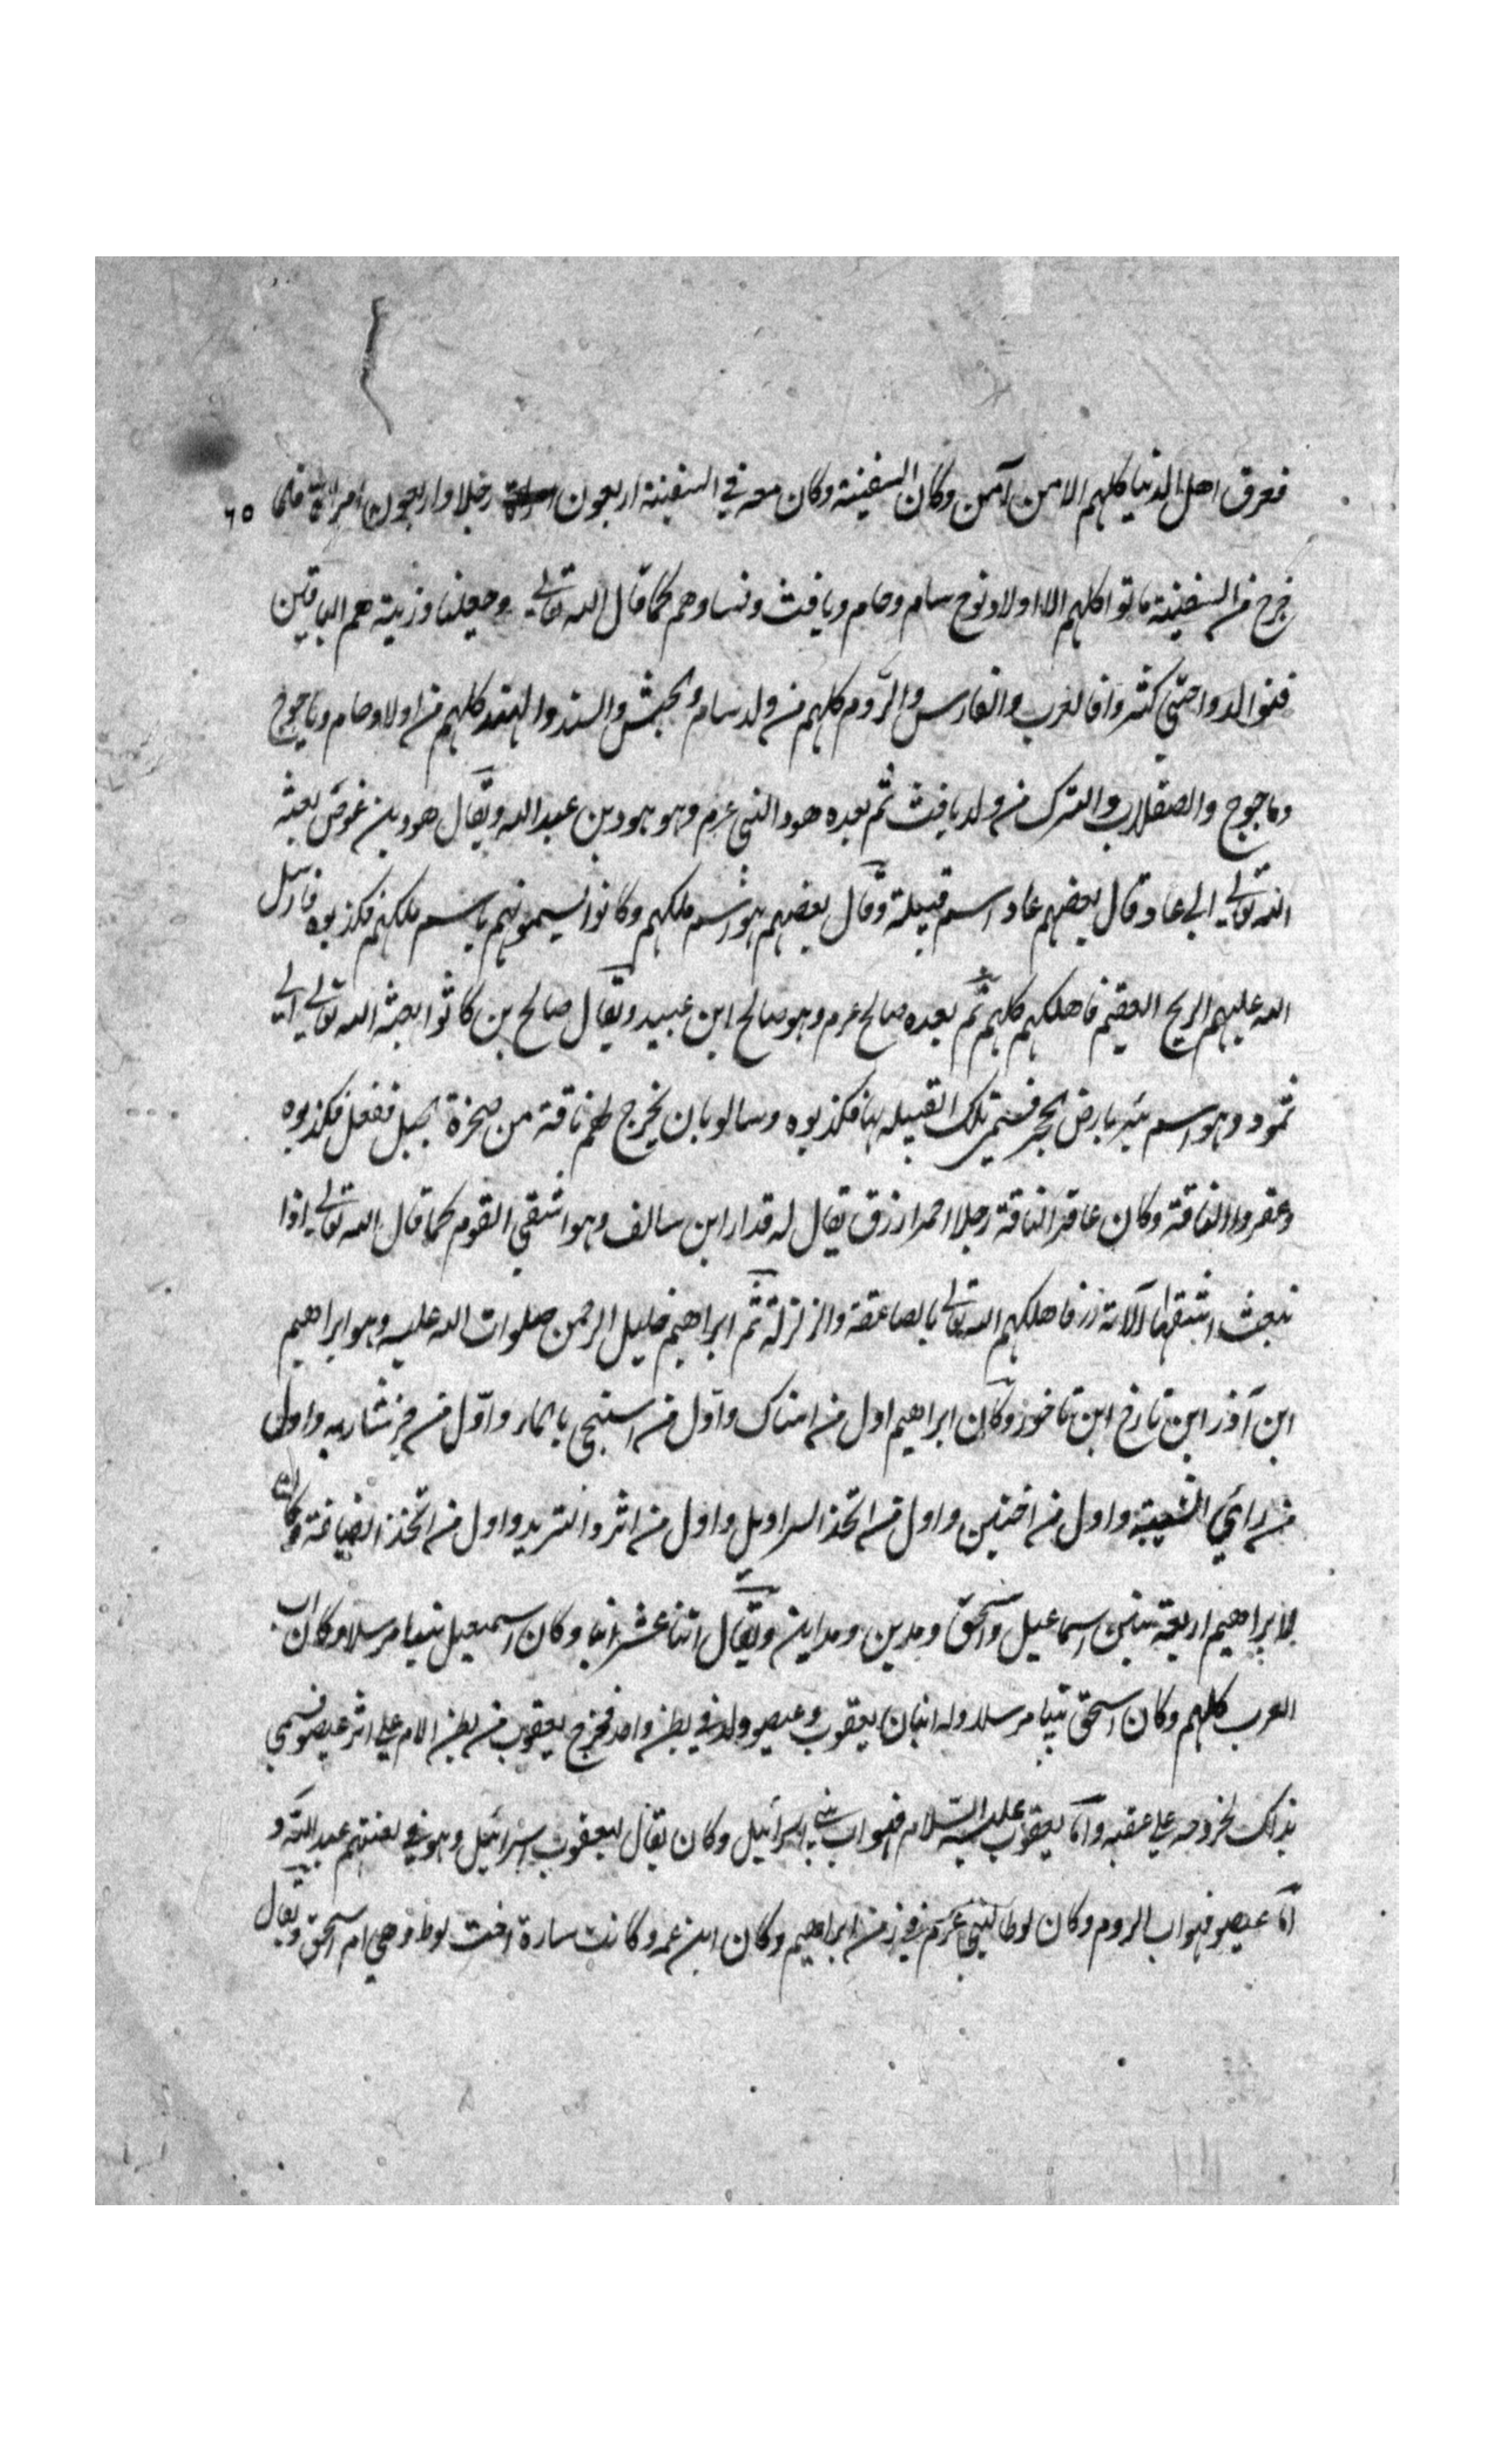 فغرق اهل الدنيا كلهم الا من آمن وكان السفينة وكان معه في السفينة اربعون رجلا واربعون امراة فلما
٦٥
خرج من السفينة ماتوا كلهم الا اولاد نوح سام وحام ويافث ونساوهم كما قال الله تعالي وجعلنا وذريته هم الباقين
فتوالدوا حتي كثروا فالعرب والفارس والروم كلهم من ولد سام والحبش والسند والهند كلهم من اولاد حام وياجوج
وماجوج والصقلاب والترك من ولد يافث ثم بعده هود النبي عرم وهو هود بن عبد الله ويقال هود بن عوض بعثه
الله تعالي الي عاد وقال بعضهم عاد اسم قبيلة وقال بعضهم هو اسم ملكهم وكانوا يسمونهم باسم ملكهم فكذبوه فارسل
الله عليهم الريح العقيم فاهلكهم كلهم ثم بعده صالح عرم وهو صالح ابن عبيد ويقال صالح بن كاثوا بعثه الله تعالي الي
ثمود وهو اسم بئر بارض الحجر فسمي تلك القبيله بها فكذبوه وسالو بان يخرج لهم ناقة من صخرة الجبل ففعل فكذبوه
وعقروا الناقة وكان عاقر الناقة رجلا احمر ازرق يقال له قدار ابن سالف وهو اشقي القوم كما قال الله تعالي اذا
نبعث اشقها الآية فاهلكهم الله تعالي بالصاعقة والزلزلة ثم ابراهيم خليل الرحمن صلوات الله عليه وهو ابراهيم
ابن آذر ابن تارخ ابن تاخور وكان ابراهيم اول من استاك واول من استنجي بالماء واول من جز شاربه واول
من راي الشيبة واول من اختتن واول من اتخذ السراويل واول من اثرد الثريد واول من اتخذ الضيافة وكان
لابراهيم اربعة بنين اسماعيل واسحق ومدين ومداين ويقال اثنا عشر ابنا وكان اسمعيل نبيا مرسلا وكان اب
العرب كلهم وكان اسحق نبيا مرسلا وله ابنان يعقوب وعيصو ولد في بطن واحد فخرج يعقوب من بطن الام علي اثر عيصو فسمي
بذلك لخروجه علي عقبه واما يعقوب عليه السلام فهو اب بني اسرائيل وكان يقال ليعقوب اسرائيل وهو في لغتهم عبد الله و
اما عيصو فهو اب الروم وكان لوطا النبي عرم في زمن ابراهيم وكان ابن عمه وكانت سارة اخت لوط وهي ام اسحق ويقال